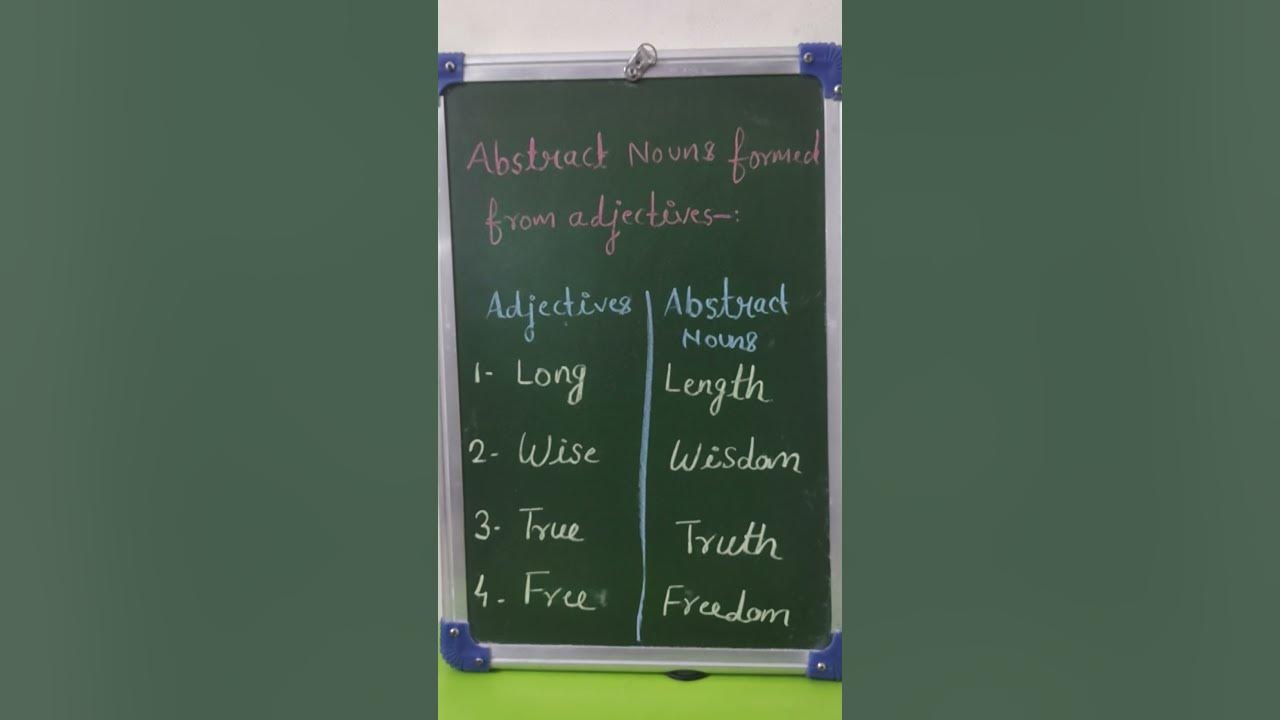 Abstract Nouns formed
from adjectives-:
Adjectives Abstract
Nouns
1- Long Length
2- Wise Wisdom
3- True Truth
4- Free Freedom